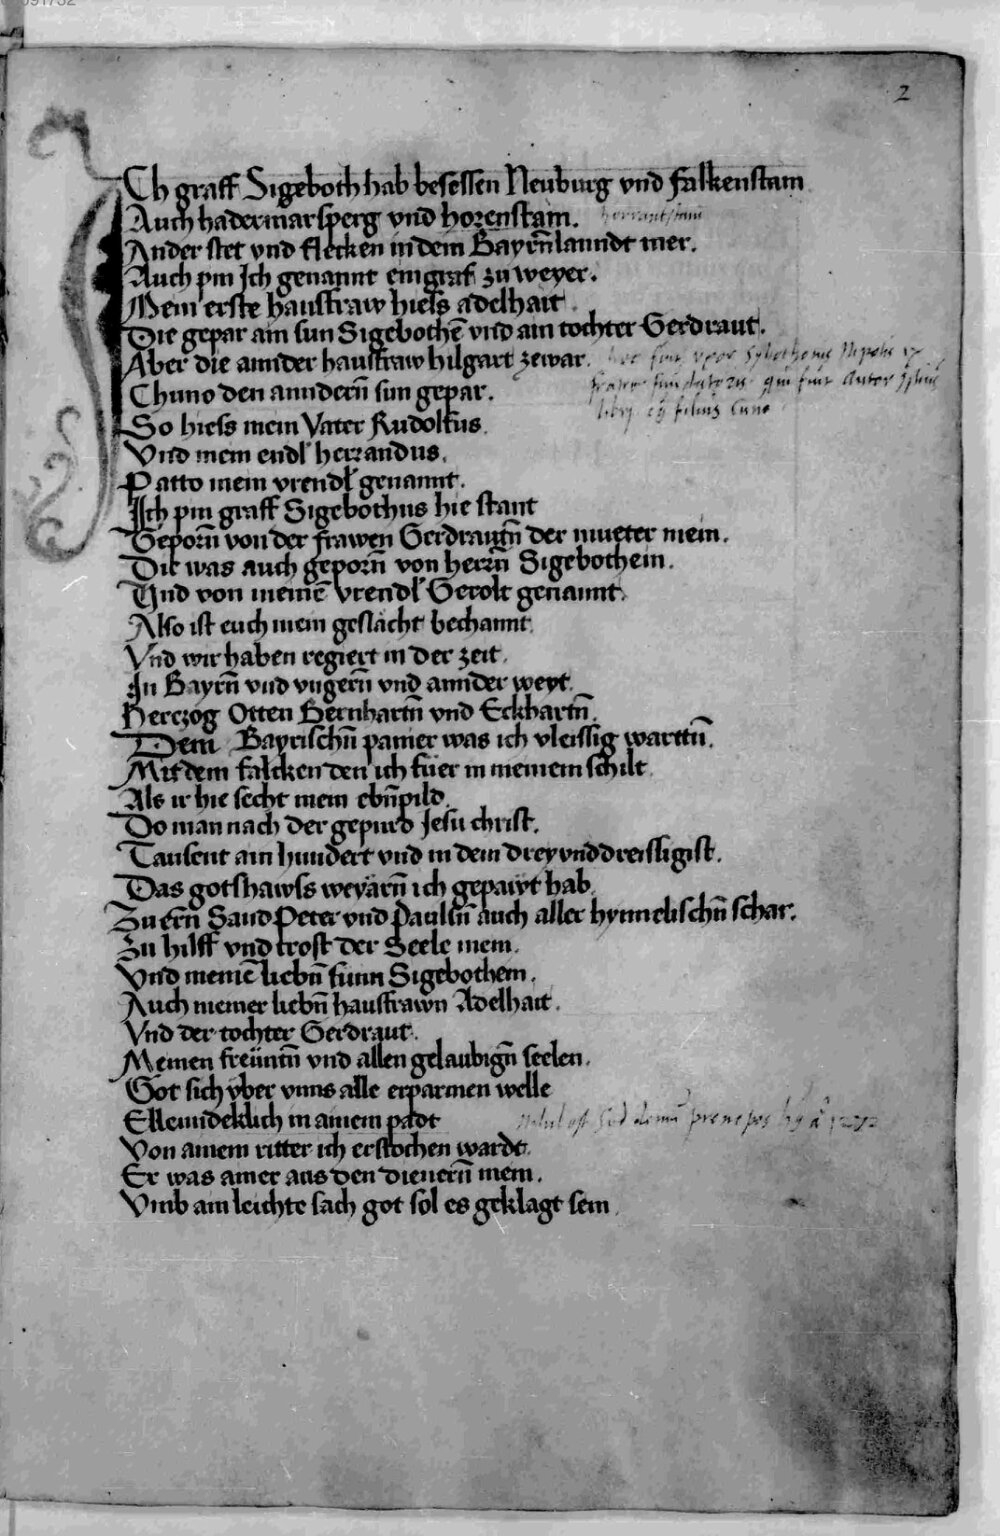 2
ICh graff Sigeboth hab besessen Neuburg vnd falkenstain
Auch hadermarsperg vnd horenstain.
Ander stet vnd flecken in dem Bayrñ lanndt mer.
Auch pin Ich genannt ein graf zu weyer.
Mein erste hausfraw hiess adelhait
Die gepar ain sun Sigebothē vnd ain tochter Gerdraut.
Aber die annder hausfraw hilgart zewar.
Chuno den annderñ sun gepar.
So hiess mein Vater Rudolfus
Vnd mein endl herrandus.
Patto mein vrendl genannt.
Ich pin graff Sigebothus hie stant
Geporñ von der frawen Gerdrautñ der mueter mein.
Die was auch geporñ von herrñ Sigebothein.
Vnd von meinē vrendl Gerolt genannt.
Also ist euch mein geslácht bechannt
Vnd wir haben regiert in der zeit.
In Bayrñ vnd vngerñ vnd annder weyt.
Herczog Otten Bernhartñ vnd Eckhartñ.
Dem Bayrischñ panier was ich vleissig warttñ.
Mit dem falcken den ich fuer in meinem schilt
Als ir hie secht mein ebñpild.
Do man nach der gepurd Jesu christ.
Tausent ain hundert vnd in dem drey vnd dreissigist.
Das gotshawss weyarñ ich gepawt hab
Zu erñ Sand Peter vnd Paulsñ auch aller hymnelischñ schar.
Zu hilff vnd trost der Seele mein.
Vnd meinē liebñ sunn Sigebothein.
Auch meiner liebñ hausfrawn Adelhait.
Vnd der tochter Gerdraut.
Meinen freüntñ vnd allen gelaubigñ seelen.
Got sich vber vnns alle erparmen welle
Ellenndeklich in ainem padt
Von ainem ritter ich erstochen wardt.
Er was ainer aus den dienerñ mein.
Vmb ain leichte sach got sol es geklagt sein